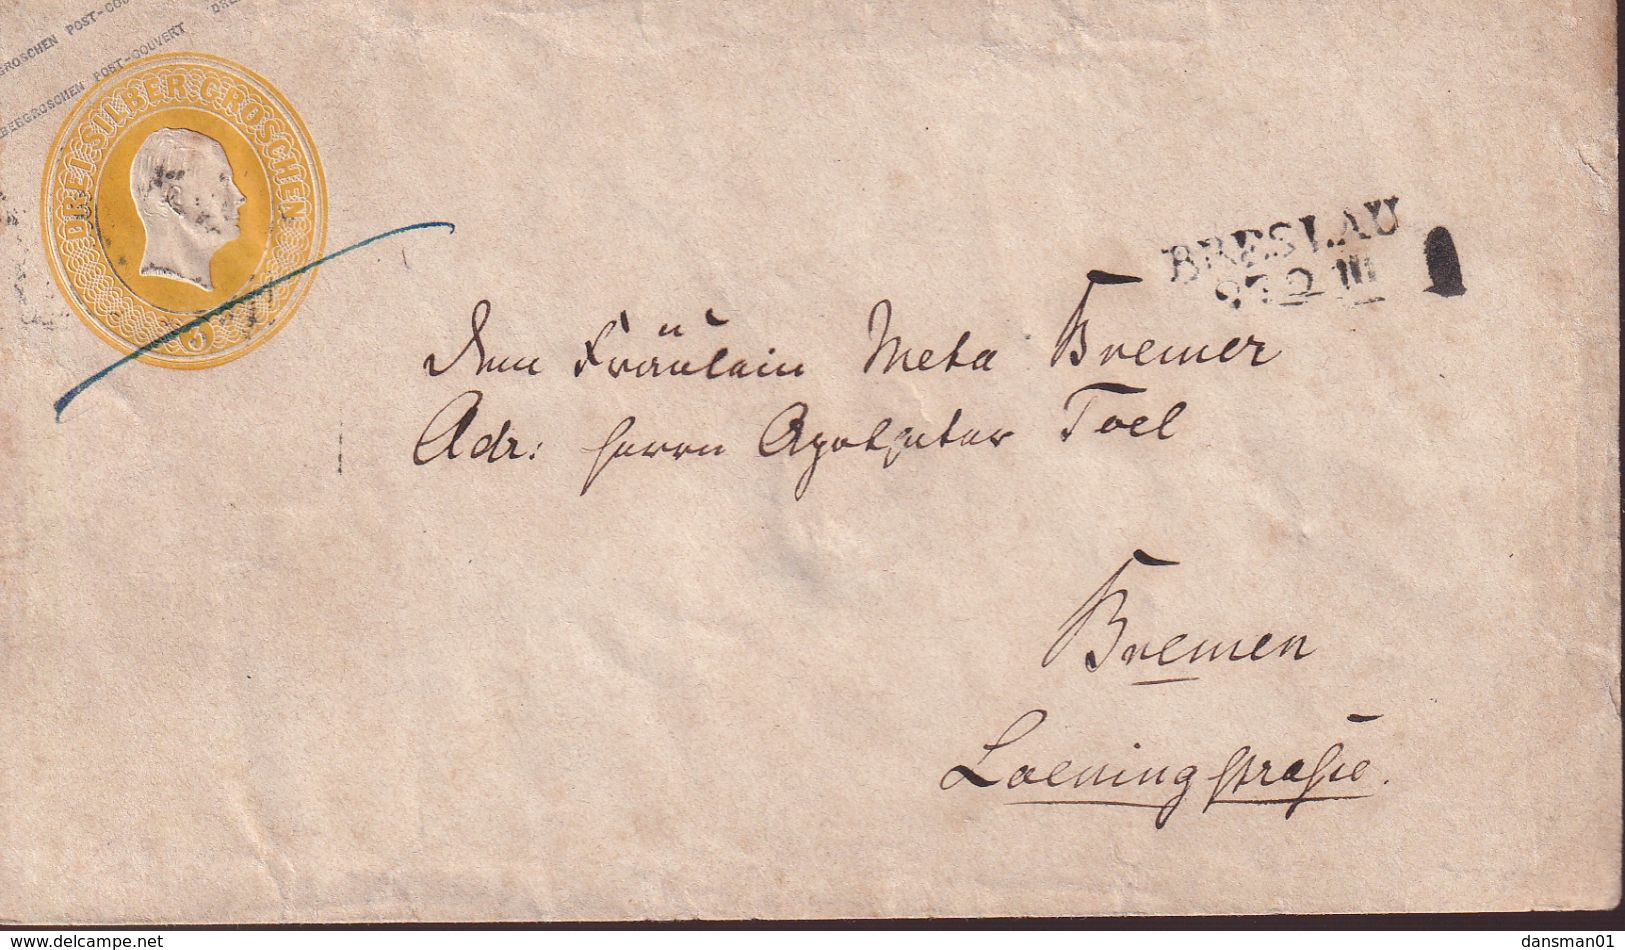 GROSCHEN POST-COU
BERGROSCHEN POST-COUVERT DRE
DREI SILBER GROSCHEN
BRESLAU
27 2 III
Dem Fräulein Meta Bremer
Adr: Herrn Apotheker Toel
Bremen
Loeningstraße.
delcampe.net
dansman01